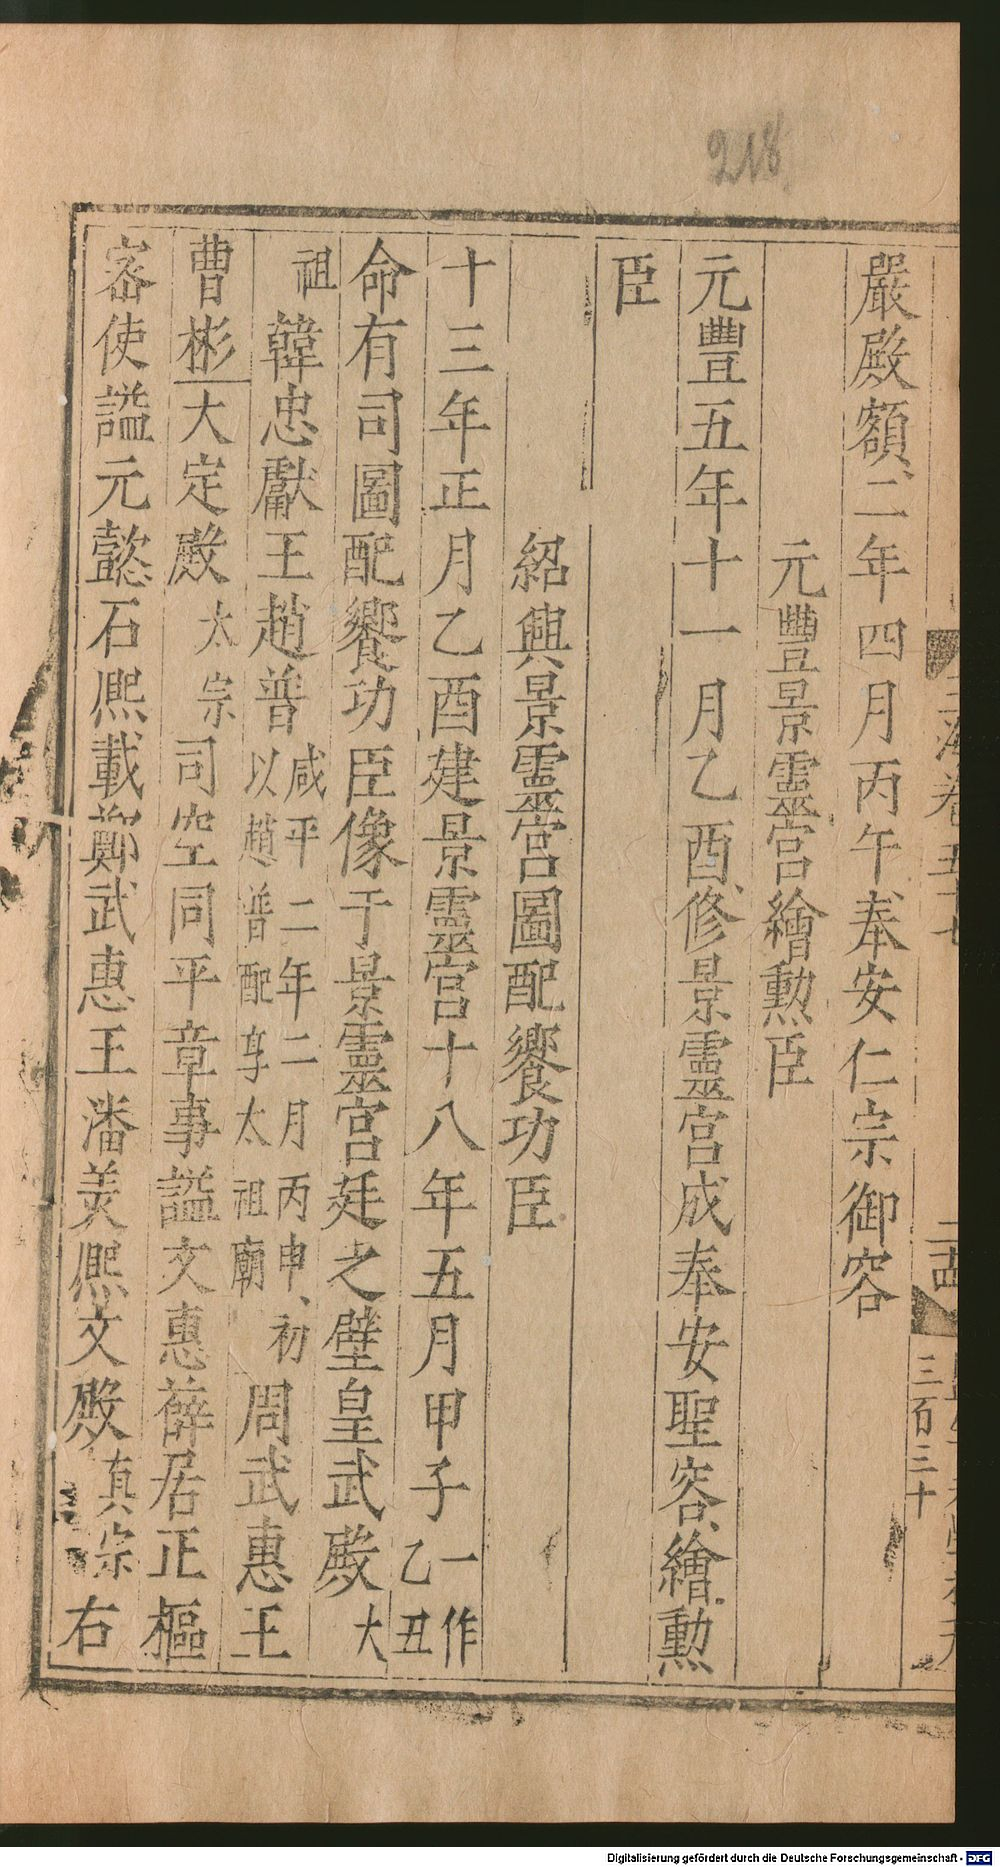 218
嚴殿額二年四月丙午奉安仁宗御容
元豐景靈宮繪勲臣
元豐五年十一月乙酉修景靈宮成奉安聖容繪勲
臣
紹興景靈宮圖配饗功臣
十三年正月乙酉建景靈宮十八年五月甲子一作乙丑
命有司圖配饗功臣像于景靈宮廷之壁皇武殿大
祖韓忠獻王趙普咸平二年二月丙申初以趙普配享太祖廟周武惠王
曹彬大定殿太宗司空同平章事謚文惠薛居正樞
宻使謚元懿石熈載鄭武惠王潘美熈文殿真宗右
卷五十七
三百三十
Digitalisierung gefördert durch die Deutsche Forschungsgemeinschaft - DFG